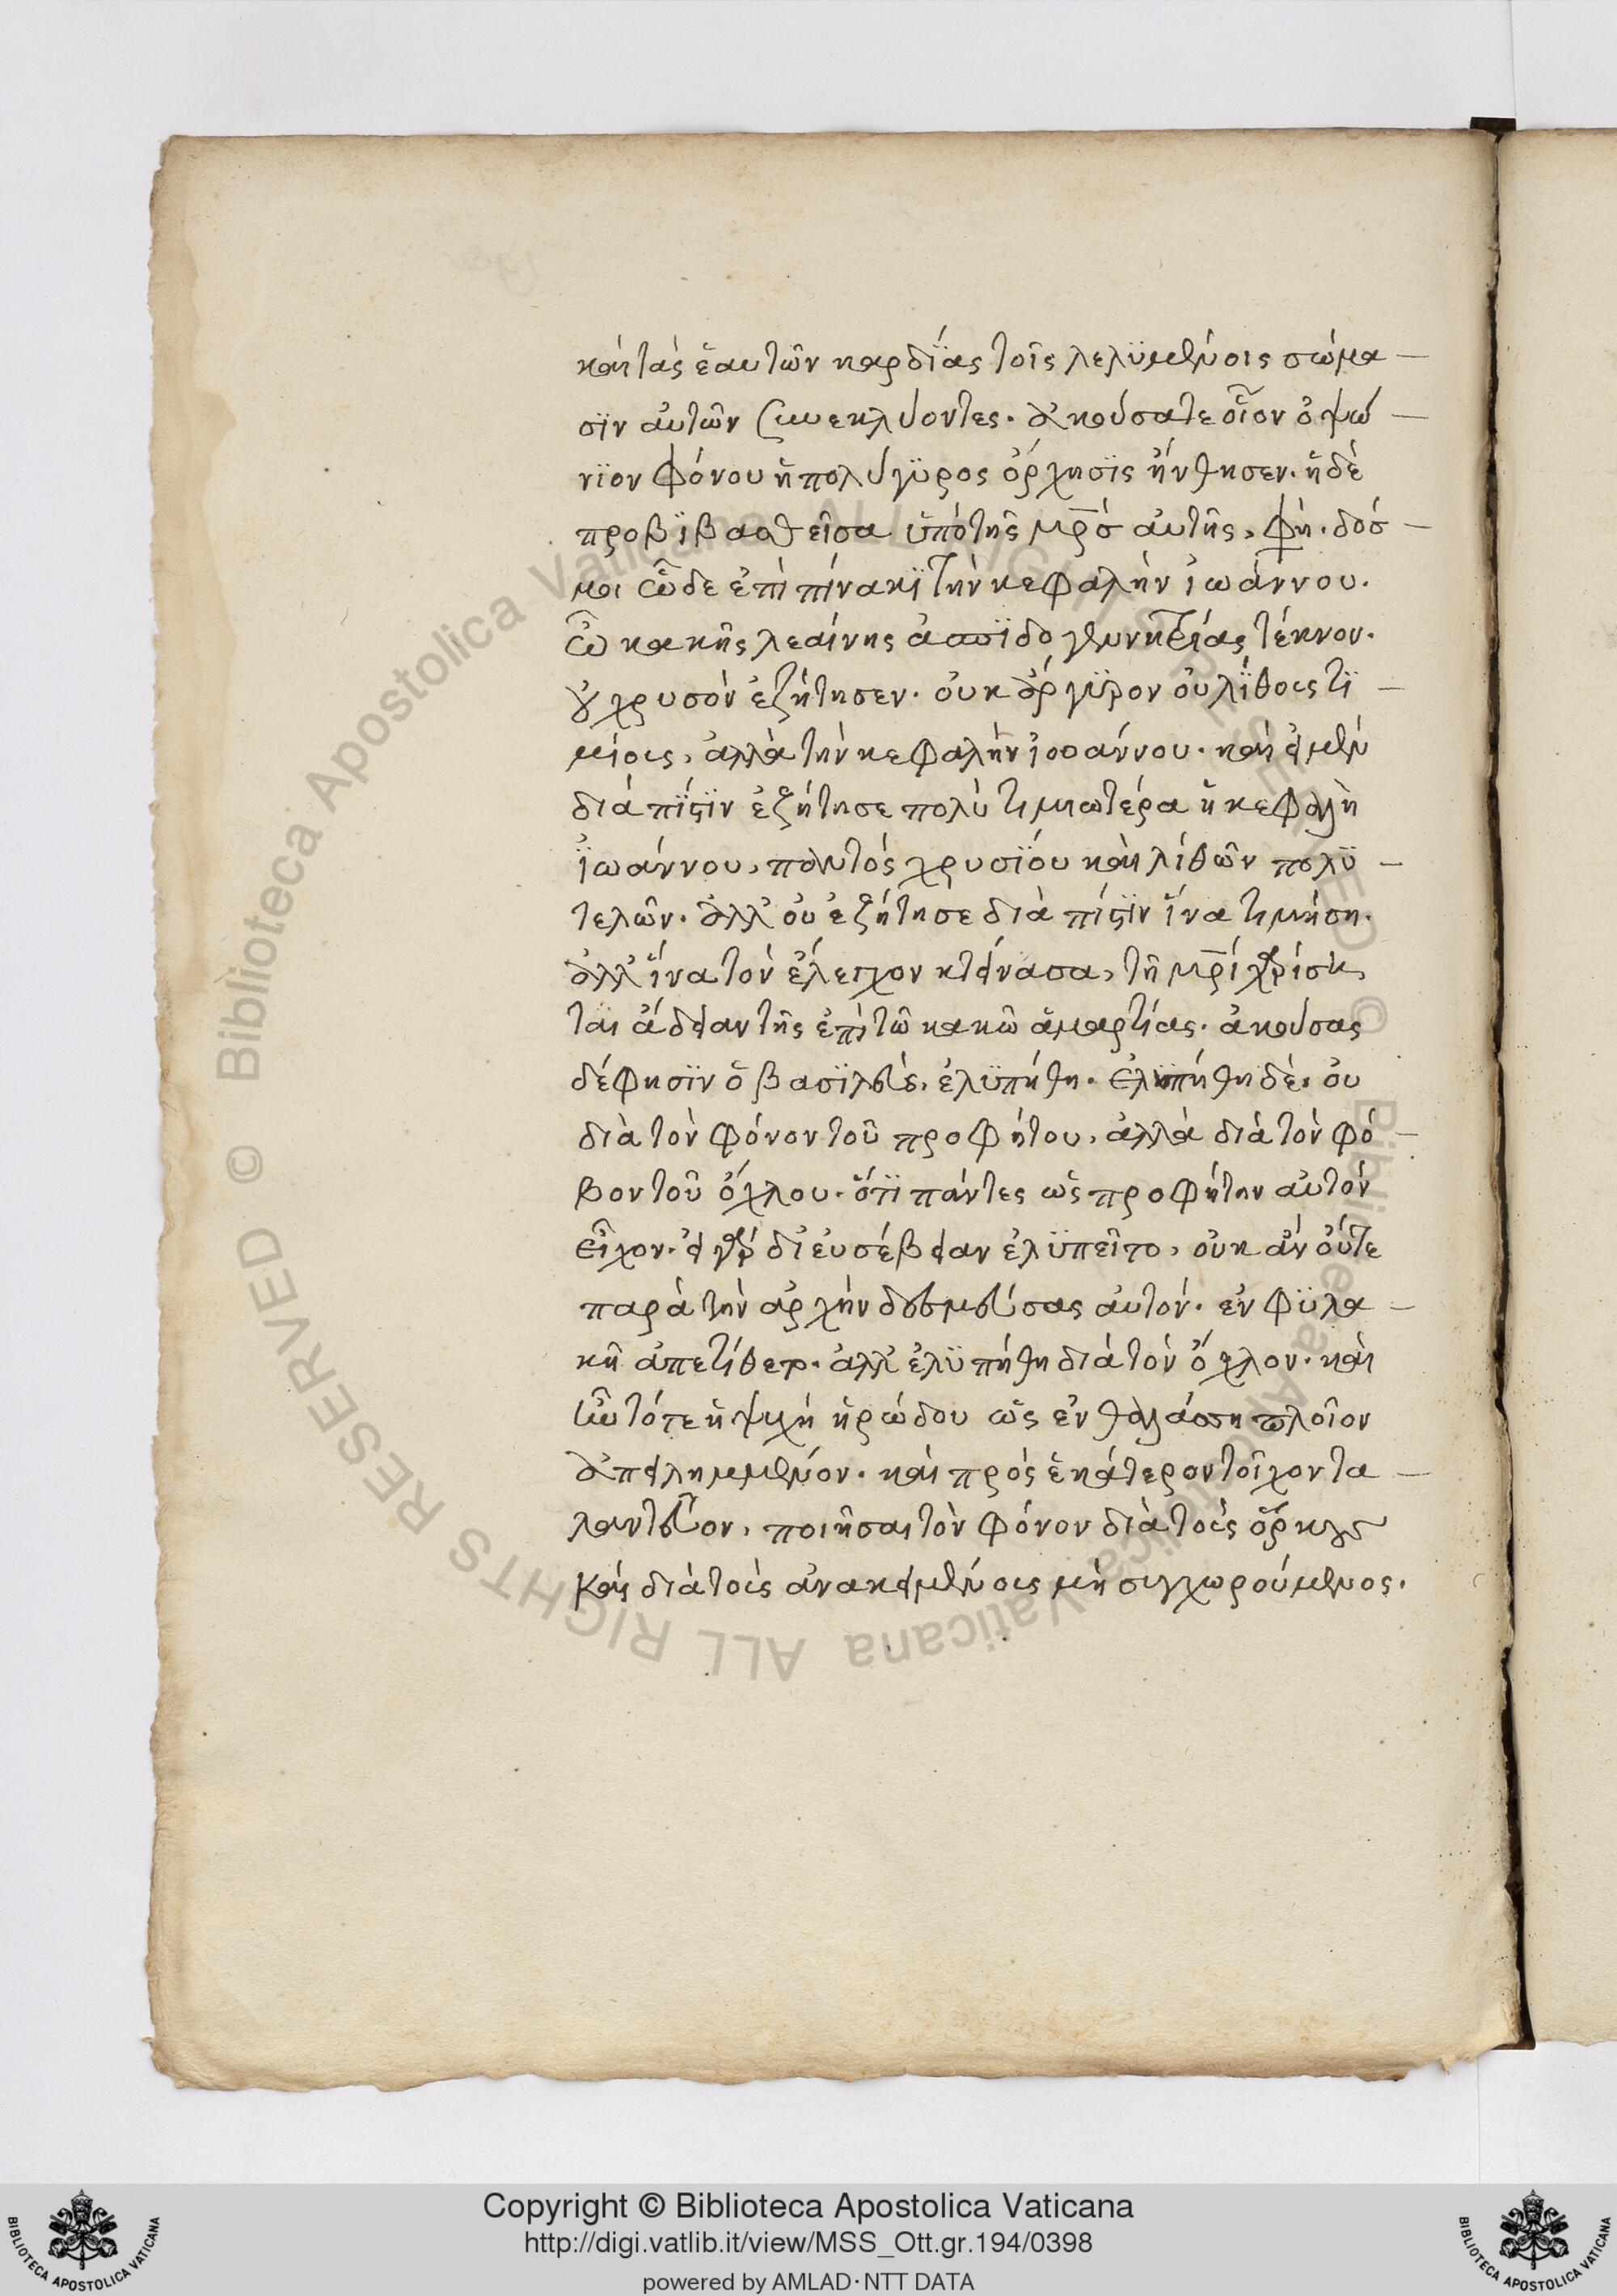 καὶ τὰς ἑαυτῶν καρδίας τοῖς λελϋμένοις σώμα –
σϊν αὐτῶν συνεκλύοντες. ἀκούσατε οἷον ὀψώ –
νϊον φόνου ἡ πολύγϋρος ὄρχησϊς ἤνθησεν. ἡ δὲ
προβϊβασθεῖσα ὑπὸ τῆς μρ̅ς αὐτῆς, φη. δός –
μοι ὧδε ἐπὶ πίνακϊ τὴν κεφαλὴν ἰωάννου.
ὢ κακῆς λεαίνης ἀσπϊδογεννητρίας τέκνον.
οὐ χρυσὸν ἐζήτησεν. οὐκ ἄργϋρον οὐ λΐθοις τϊ –
μίοις, ἀλλὰ τὴν κεφαλὴν ἰωάννου. καὶ εἰ μὲν
διὰ πΐστϊν ἐζήτησε πολὺ τιμιωτέρα ἡ κεφαλὴ
ϊωάννου, παντὸς χρυσϊου καὶ λίθων πολϋ –
τελῶν. ἀλλ' οὐ ἐζήτησε διὰ πίστϊν ἵνα τιμήση.
ἀλλ' ἵνα τὸν ἔλεγχον κτείνασα, τῆ μρ̅ι
ται ἄδειαν τῆς ἐπὶ τῶ κακῶ ἁμαρτίας. ἀκούσας
δέ φησϊν ὁ βασϊλεὺς, ἐλϋπήθη. ἐλϋπήθη δὲ, οὐ
διὰ τὸν φόνον τοῦ προφήτου, ἀλλὰ διὰ τὸν φό –
βον τοῦ ὄχλου. ὅτϊ πάντες ὡς προφήτην αὐτὸν
εἶχον. εἰ γὰρ δι' εὐσέβειαν ἐλϋπεῖτο, οὐκ ἂν οὔτε
παρὰ τὴν ἀρχὴν δεσμεύσας αὐτὸν. ἐν φϋλα –
κῆ ἀπετίθετο. ἀλλ' ἐλϋπήθη διὰ τὸν ὄχλον. καὶ
ἦν τότε ἡ ψυχὴ ἡρώδου ὡς ἐν θαλάσση πλοῖον
ἀπειλημμένον. καὶ πρὸς ἑκάτερον τοῖχον τα –
λαντεῦον, ποιῆσαι τὸν φόνον διὰ τοὶς ὅρκους
καὶ διὰ τοὶς ἀνακειμένοις μὴ συγχωρούμενος.
© Biblioteca Apostolica Vaticana ALL RIGHTS RESERVED © Biblioteca Apostolica Vaticana ALL RIGHTS RESERVED
Copyright © Biblioteca Apostolica Vaticana
http://digi.vatlib.it/view/MSS_Ott.gr.194/0398
powered by AMLAD·NTT DATA
BIBLIOTECA APOSTOLICA VATICANA
BIBLIOTECA APOSTOLICA VATICANA